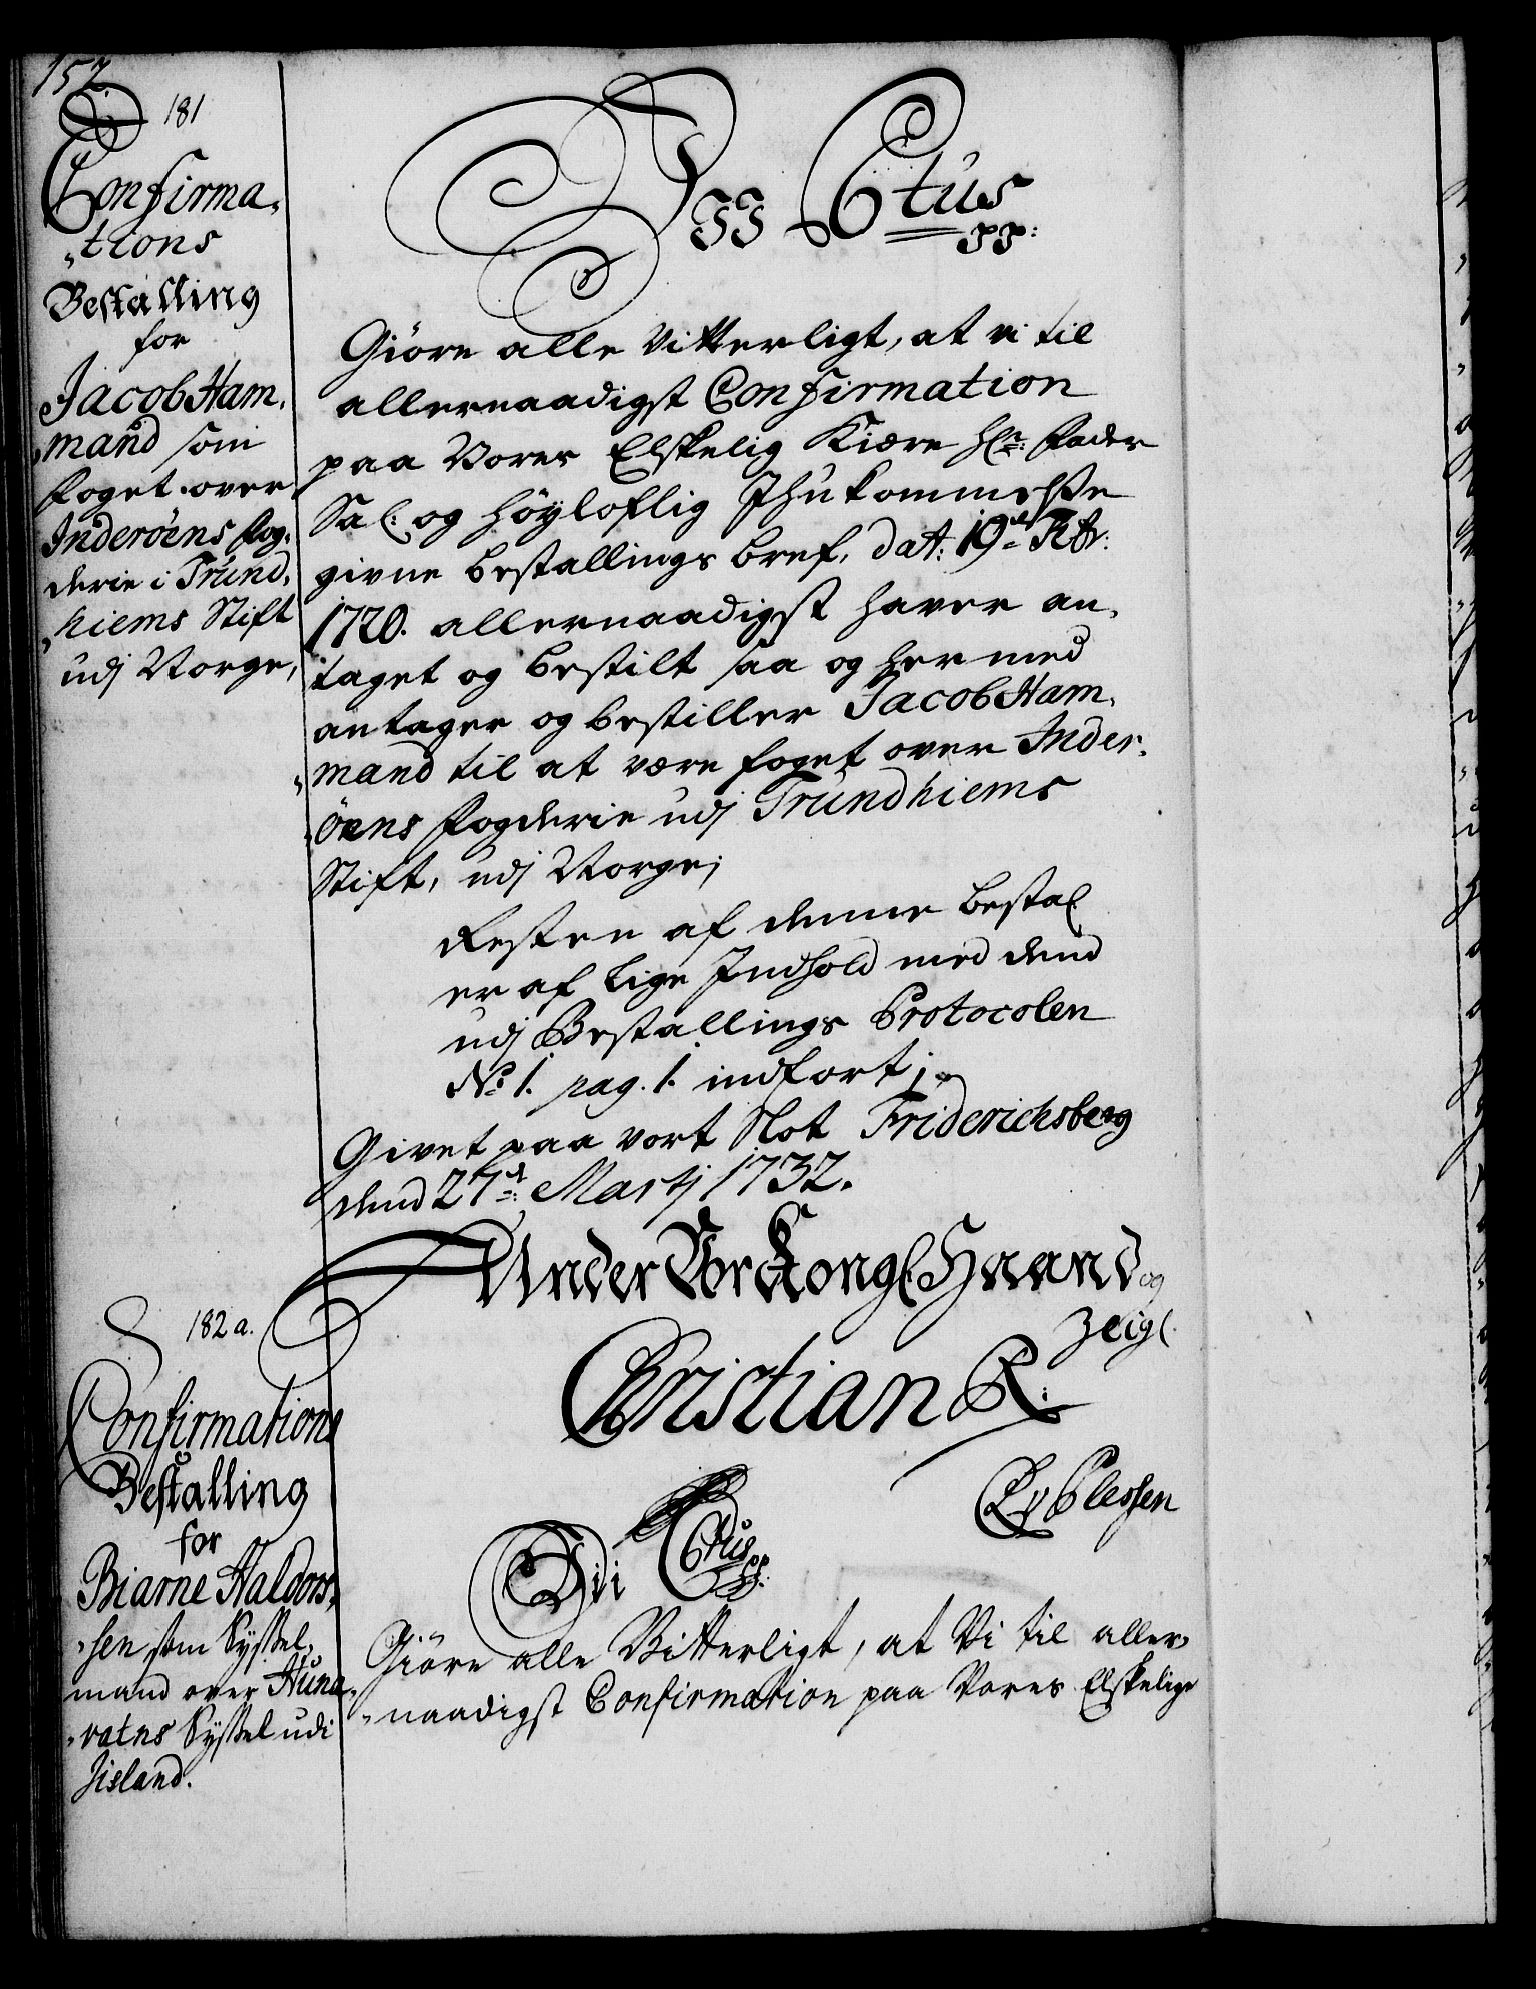 152.
181
Confirma,
„tions
Bestalling
for
Jacob Ham,
„mand som
foget over
Inderöens fog,
derie i Trund,
„hiems Stift
udj Norge,
C 6tus
pp:
Giöre alle Vitterligt, at vi til
allernaadigst Confirmation
paa Vores Elskelig Kiære Hr: Fader
Sal: og Höyloflig Ihukommelse
givne bestallings bref, dat: 19d Febr:
1720. allernaadigst haver an,
taget og bestilt saa og hermed
antager og bestiller Jacob Ham,
„mand til at være foget over Inder,
„öens fogderie udj Trundhiems
Stift, udj Norge;
Resten af denne bestal
er af lige Indhold med dend
udj Bestallings Protocolen
No 1. pag. 1. indfort;
Givet paa vort Slot Friderichsberg
dend 27d: Martj 1732.
Under Vor Kongl Haand og
Zeigl.
Christian R:
CvPlessen
182 a.
Confirmations
Bestalling
for
Biarne Haldors,
„sen som Syssel,
mand over Huna,
„vatns Syssel udi
Jisland.
C 6tus
pp:
Giöre alle Vitterligt, at Vi til aller,
„naadigst Confirmation paa Vores Elskelige